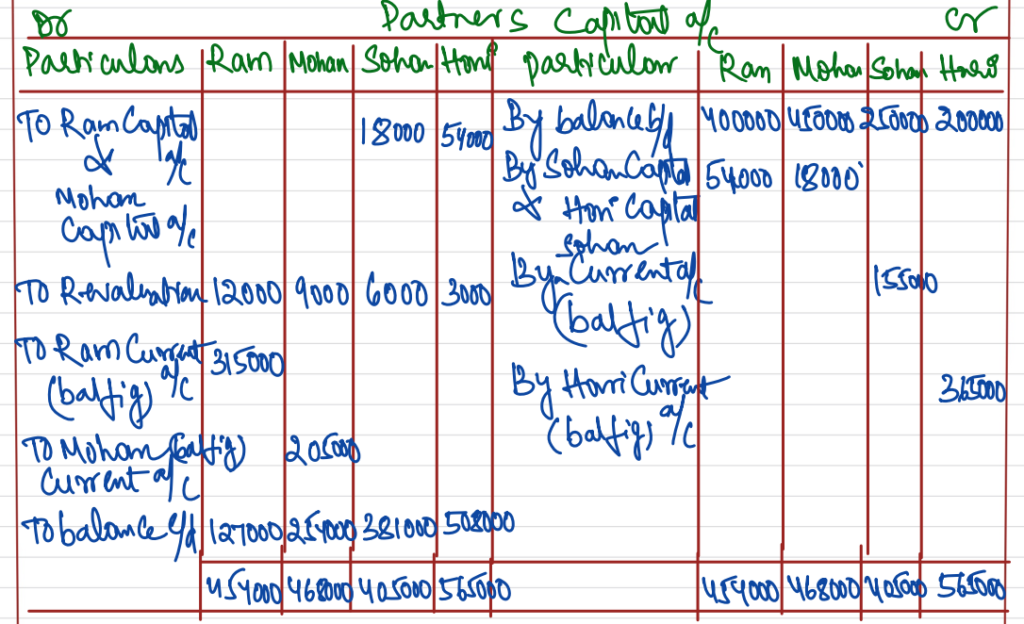 Dr Partners Capital a/c Cr
Particulars Ram Mohan Sohan Hari particulars Ram Mohan Sohan Hari
To Ram Capital 18000 54000 By balance b/d 400000 450000 250000 200000
& a/c By Sohan Capital 54000 18000
Mohan & Hari Capital
Capital a/c Sohan
By Current a/c 155000
To Revaluation 12000 9000 6000 3000 (balfig)
To Ram Current 315000
(balfig) a/c By Hari Current 365000
(balfig) a/c
To Mohan (balfig) 205000
Current a/c
To balance c/d 127000 254000 381000 508000
454000 468000 405000 565000 454000 468000 405000 565000